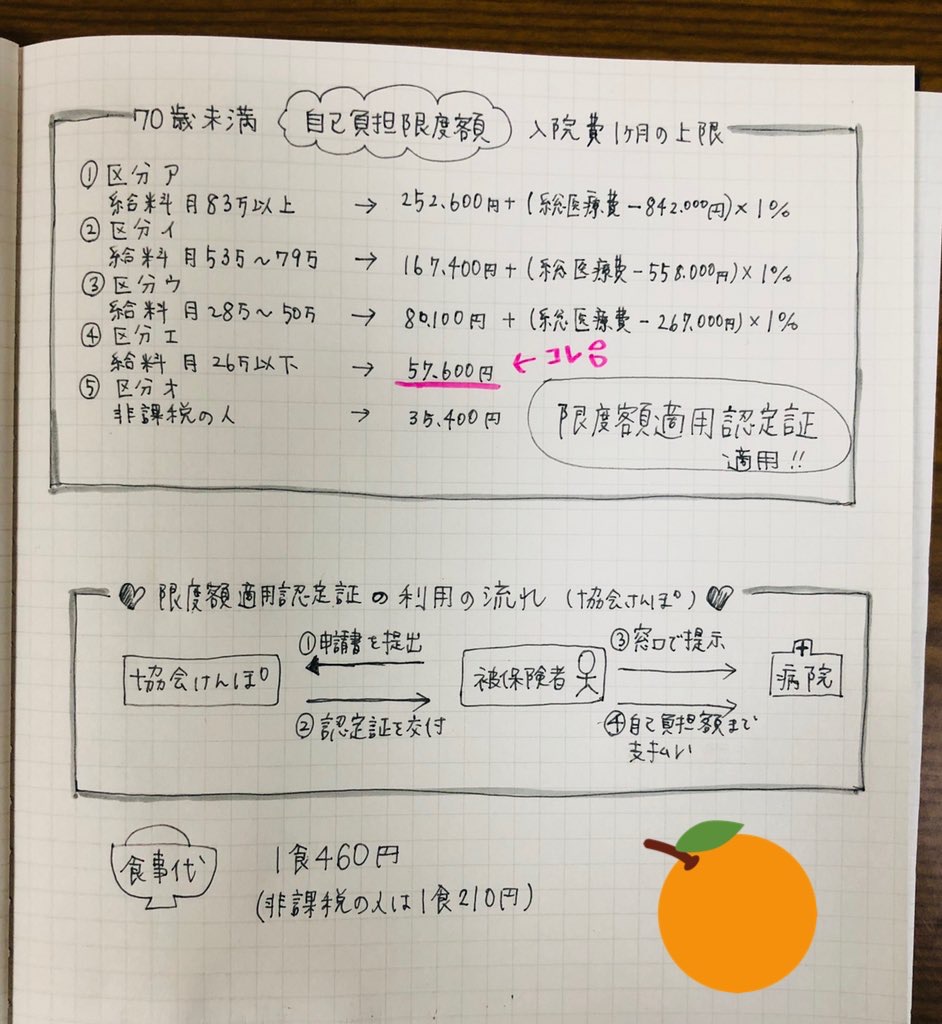 70歳未満 自己負担限度額 入院費1ヶ月の上限
①区分ア
給料月83万以上 → 252.600円+(総医療費-842.000円)×1%
②区分イ
給料月53万～79万 → 167.400円+(総医療費-558.000円)×1%
③区分ウ
給料月28万～50万 → 80.100円+(総医療費-267.000円)×1%
④区分エ
給料月26万以下 → 57.600円 ←コレ
⑤区分オ
非課税の人 → 35.400円
限度額適用認定証
適用!!
限度額適用認定証の利用の流れ(協会けんぽ)
①申請書を提出 ③窓口で提示
協会けんぽ 被保険者 病院
②認定証を交付 ④自己負担額まで
支払い
食事代 1食460円
(非課税の人は1食210円)